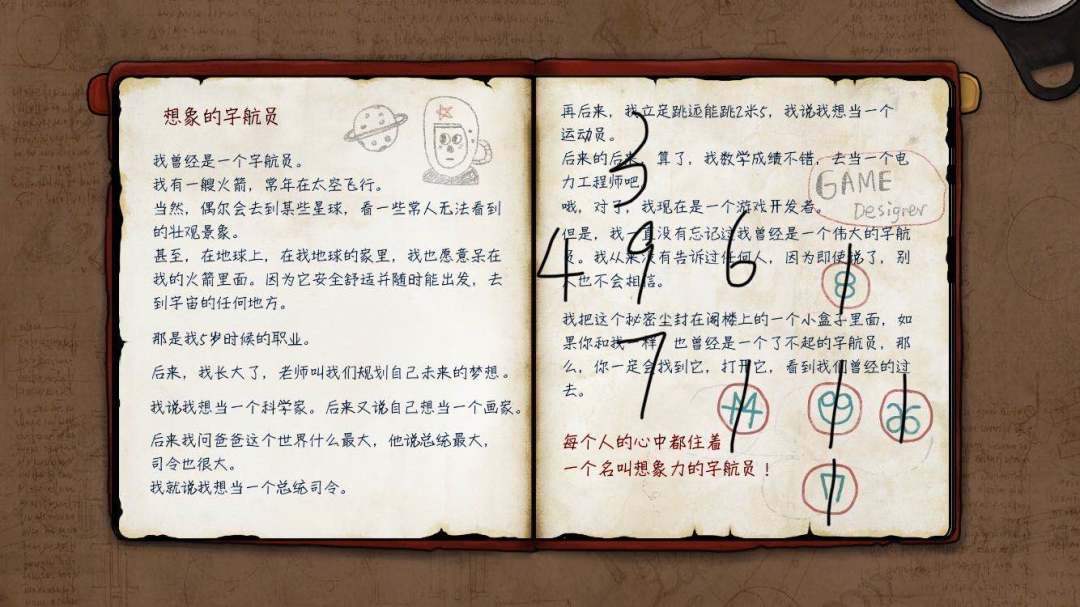 想象的宇航员
我曾经是一个宇航员。
我有一艘火箭，常年在太空飞行。
当然，偶尔会去到某些星球，看一些常人无法看到
的壮观景象。
甚至，在地球上，在我地球的家里，我也愿意呆在
我的火箭里面。因为它安全舒适并随时能出发，去
到宇宙的任何地方。
那是我5岁时候的职业。
后来，我长大了，老师叫我们规划自己未来的梦想。
我说我想当一个科学家。后来又说自己想当一个画家。
后来我问爸爸这个世界什么最大，他说总统最大，
司令也很大。
我就说我想当一个总统司令。
再后来，我立定跳远能跳2米5，我说我想当一个
运动员。
后来的后来，算了，我数学成绩不错，去当一个电
力工程师吧
哦，对了，我现在是一个游戏开发者。
GAME
Designer
但是，我一直没有忘记过我曾经是一个伟大的宇航
员。我从来没有告诉过任何人，因为即使说了，别
人也不会相信。
我把这个秘密尘封在阁楼上的一个小盒子里面，如
果你和我一样，也曾经是一个了不起的宇航员，那
么，你一定会找到它，打开它，看到我们曾经的过
去。
每个人的心中都住着
一个名叫想象力的宇航员！
3
4 9 6
7
8